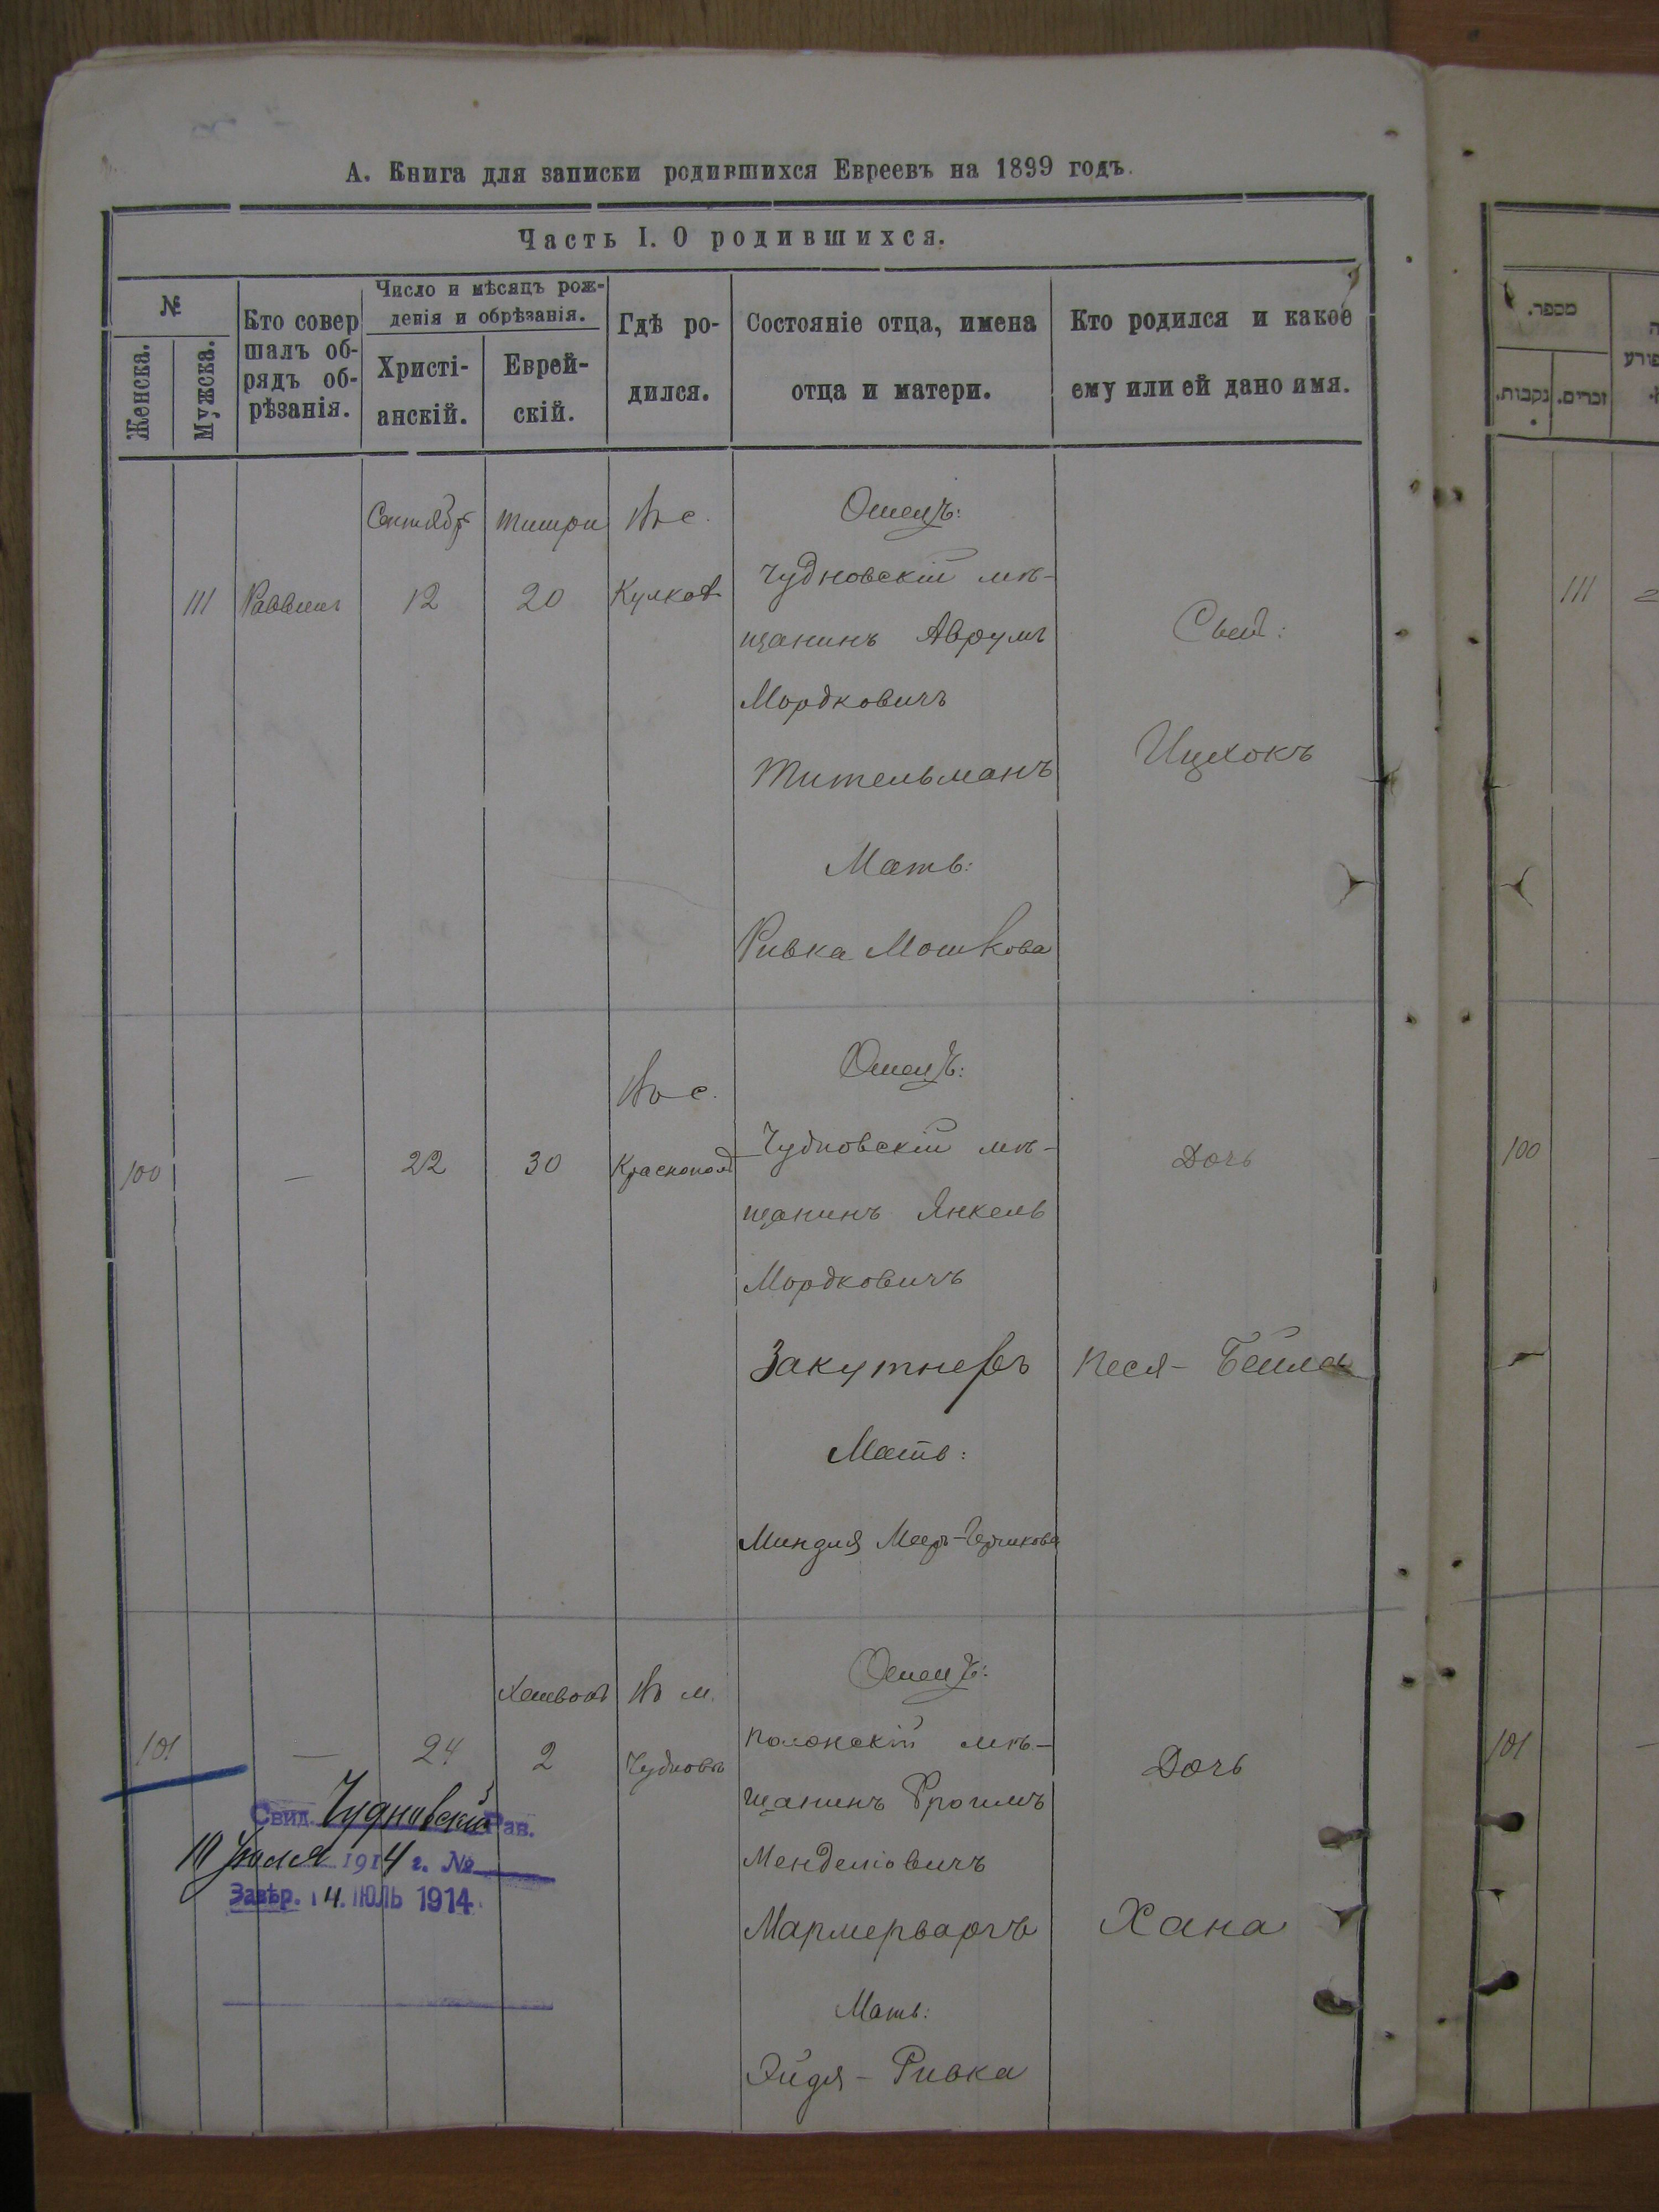 А. Книга для записки родившихся Евреевъ на 1899 годъ.
Часть I. О родившихся.
№
Женска.
Мужска.
Кто совер
шалъ об-
рядъ об-
рѣзанія.
Число и мѣсяцъ рож-
денія и обрѣзанія.
Христі-
анскій.
Еврей-
скій.
Гдѣ ро-
дился.
Состояніе отца, имена
отца и матери.
Кто родился и какое
ему или ей дано имя.
111
Раввинъ
Сентябр
12
Тишри
20
Въ с.
Отецъ:
Чудновскій мѣ-
щанинъ Аврумъ
Мордковичъ
Тительманъ
Мать:
Ривка Мошкова
Сынъ:
Ицхокъ
100
—
22
30
Въ с.
Краснопол
Отецъ:
Чудновскій мѣ-
щанинъ Янкель
Мордковичъ
Закутнеръ
Мать:
Миндля Меер-
Дочь
Песя-Бейла
101
—
24
Хешвонъ
2
Въ м.
Чудновъ
Отецъ:
Полонскій мѣ-
щанинъ Фроимъ
Менделіовичъ
Мать:
Эйдя-Ривка
Дочь
Хана
Свид. Чудновскій Рав.
10 Іюля 1914 г. №
Завѣр. 14 ІЮЛЬ 1914
מספר.
נקבות.
זכרים.
111
100
101